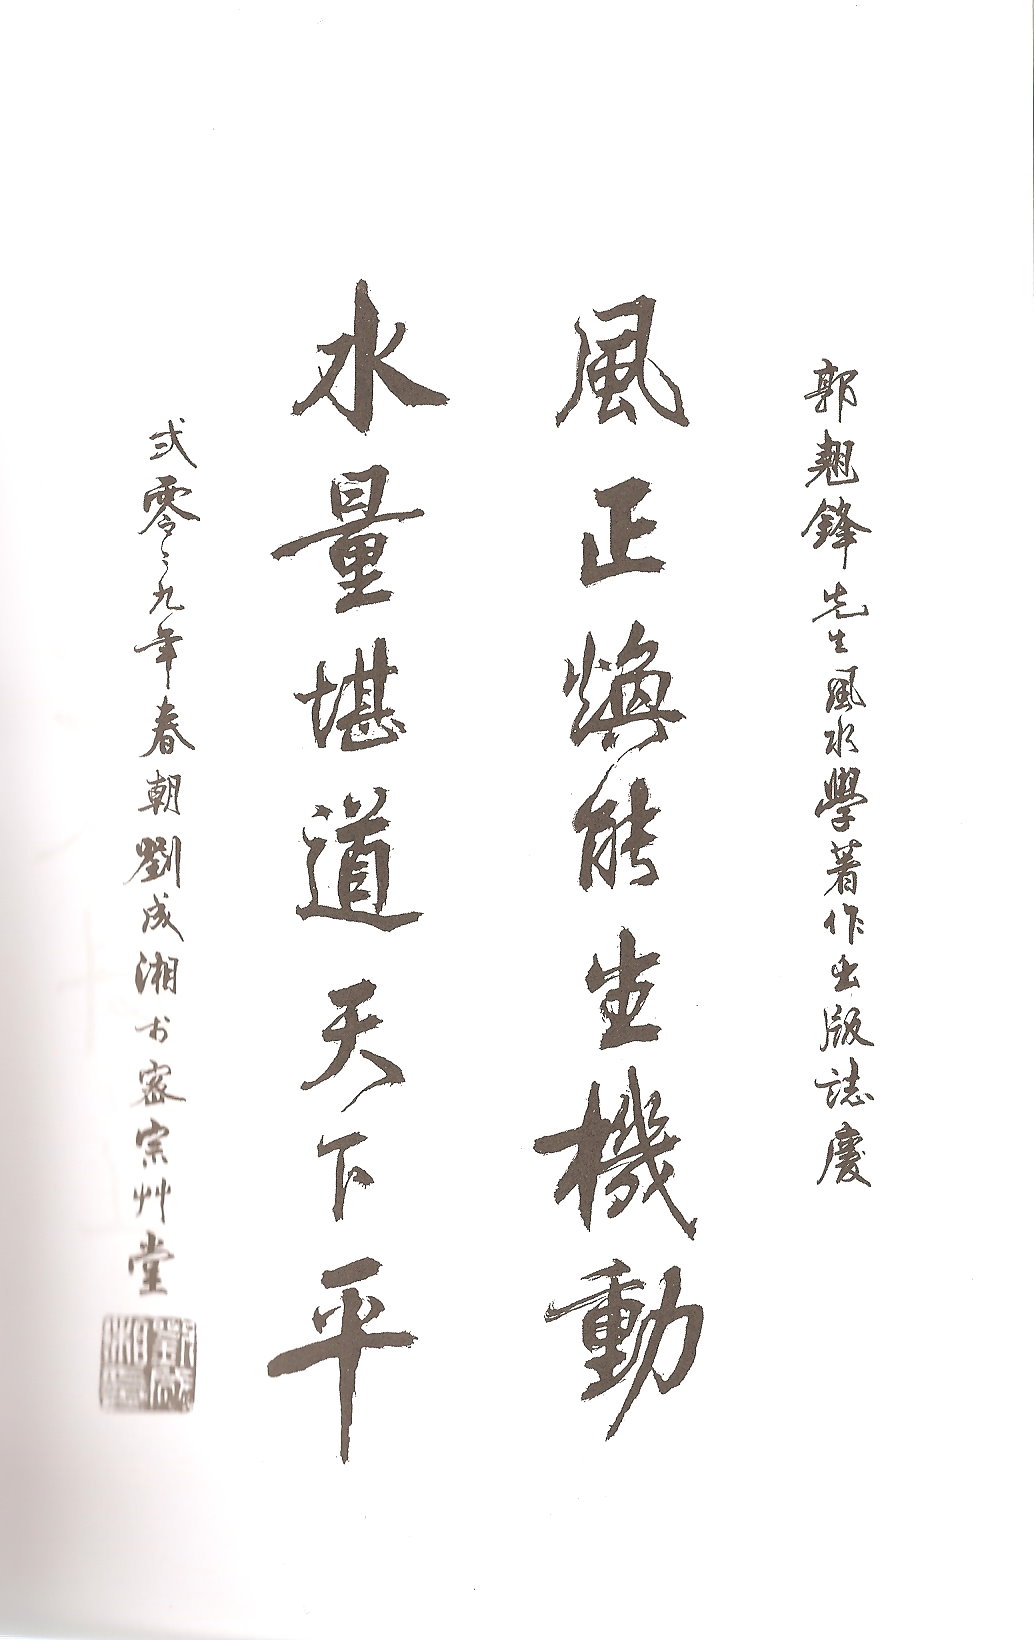 郭翹鋒先生風水學著作出版誌慶
風正煥能生機動
水量堪道天下平
弍零零九年春朝劉成湘書密宗艸堂